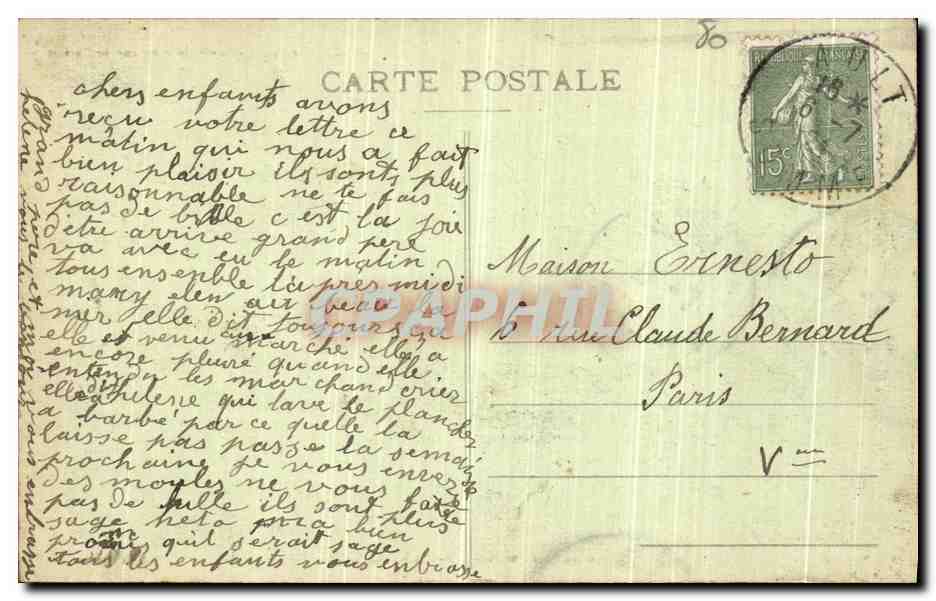 80
CARTE POSTALE
RÉPUBLIQUE FRANÇAISE
15c
AULT
chers enfants avons
reçu votre lettre ce
matin qui nous a fait
bien plaisir ils sonts plus
raisonnable ne te fais
pas de bille c est la joie
detre arrive grand pere
va avec eu le matin
tous ensenble lapres midi
mary elen au beau la
mer elle dit toujours ça
elle et venu au marché elle a
encore pleure quand elle
entendu les marchand crier
elle dit helene qui lave le plancher
a barbé par ce quelle la
laisse pas passe la semaine
prochaine je vous enverse
des moules ne vous faite
pas de bille ils sont plus
sage neto ma bien
promis quil serait sage
tous les enfants vous enbrasse
Grand pere et moi vous embrasse
helene vous le
Maison Ernesto
6 rue Claude Bernard
Paris
Vme
CPAPHIL